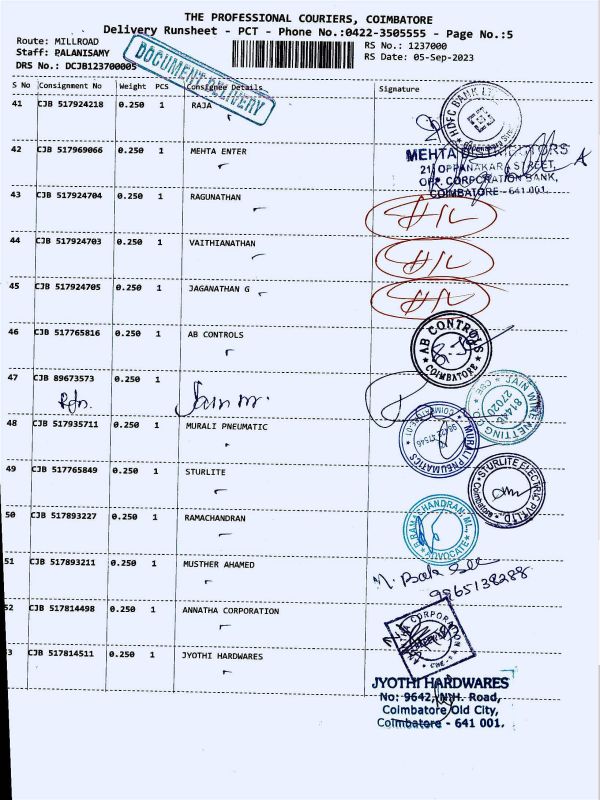 THE PROFESSIONAL COURIERS, COIMBATORE
Delivery Runsheet - PCT - Phone No.:0422-3505555 - Page No.:5
Route: MILLROAD
Staff: PALANISAMY
DRS No.: DCJB123700005
RS No.: 1237000
RS Date: 05-Sep-2023
DOCUMENT DELIVERY
S No Consignment No Weight PCS Consignee Details Signature
41 CJB 517924218 0.250 1 RAJA
HDFC BANK
42 CJB 517969066 0.250 1 MEHTA ENTER
MEHTA
21, OPPANAKARA STREET,
OPP. CORPORATION BANK,
COIMBATORE - 641 001.
43 CJB 517924704 0.250 1 RAGUNATHAN
44 CJB 517924703 0.250 1 VAITHIANATHAN
45 CJB 517924705 0.250 1 JAGANATHAN G
46 CJB 517765816 0.250 1 AB CONTROLS
AB CONTROLS
COIMBATORE
47 CJB 89673573 0.250 1
JAIN WIRE NETTING CO
CBE
48 CJB 517935711 0.250 1 MURALI PNEUMATIC
MURALI PNEUMATICS
49 CJB 517765849 0.250 1 STURLITE
STURLITE ELECTRIC PVT LTD
50 CJB 517893227 0.250 1 RAMACHANDRAN
RAMACHANDRAN
ADVOCATE
51 CJB 517893211 0.250 1 MUSTHER AHAMED
9865138288
52 CJB 517814498 0.250 1 ANNATHA CORPORATION
CORPORATION
3 CJB 517814511 0.250 1 JYOTHI HARDWARES
JYOTHI HARDWARES
No: 9642, N.H. Road,
Coimbatore Old City,
Coimbatore - 641 001.